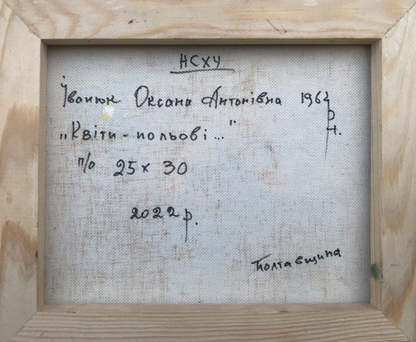 НСХУ
Іванюк Оксана Антонівна 1964 р.н.
„Квіти - польові..."
п/о 25 x 30
2022 р.
Полтавщина